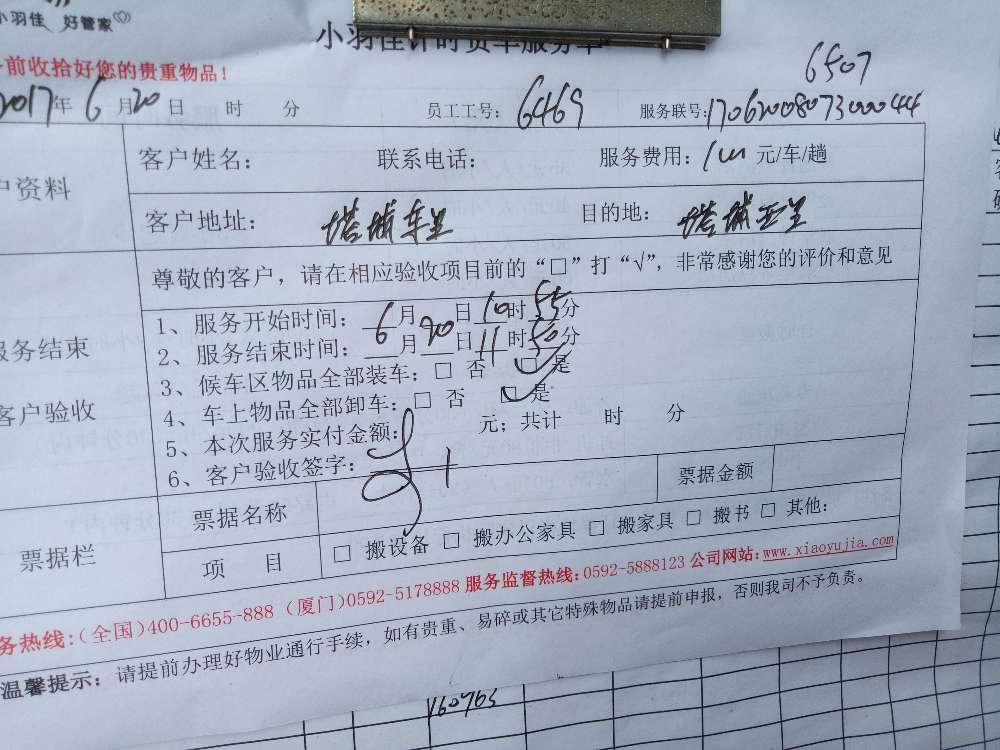 小羽佳 好管家
小羽佳计时货车服务单
前收拾好您的贵重物品!
6507
2017年6月20日 时 分 员工工号: 6469 服务联号: 17062008073000044
户资料 客户姓名: 联系电话: 服务费用: 元/车/趟
客户地址: 塔埔 目的地: 塔埔
尊敬的客户，请在相应验收项目前的“□”打“√”，非常感谢您的评价和意见
服务结束
客户验收
1、服务开始时间: 6月20日10时55分
2、服务结束时间: 月 日11时50分
3、候车区物品全部装车: □ 否 ☑ 是
4、车上物品全部卸车: □ 否 ☑ 是
5、本次服务实付金额: 元; 共计 时 分
6、客户验收签字:
票据栏 票据名称 票据金额
项 目 □ 搬设备 □ 搬办公家具 □ 搬家具 □ 搬书 □ 其他:
务热线:(全国)400-6655-888 (厦门)0592-5178888 服务监督热线:0592-5888123 公司网站:www.xiaoyujia.com
温馨提示: 请提前办理好物业通行手续，如有贵重、易碎或其它特殊物品请提前申报，否则我司不予负责。